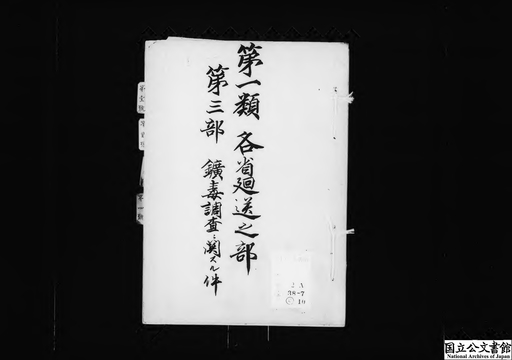 第一類 各省廻送之部
第三部 鑛毒調査ニ関スル件
2A
38-7
10
国立公文書館
National Archives of Japan